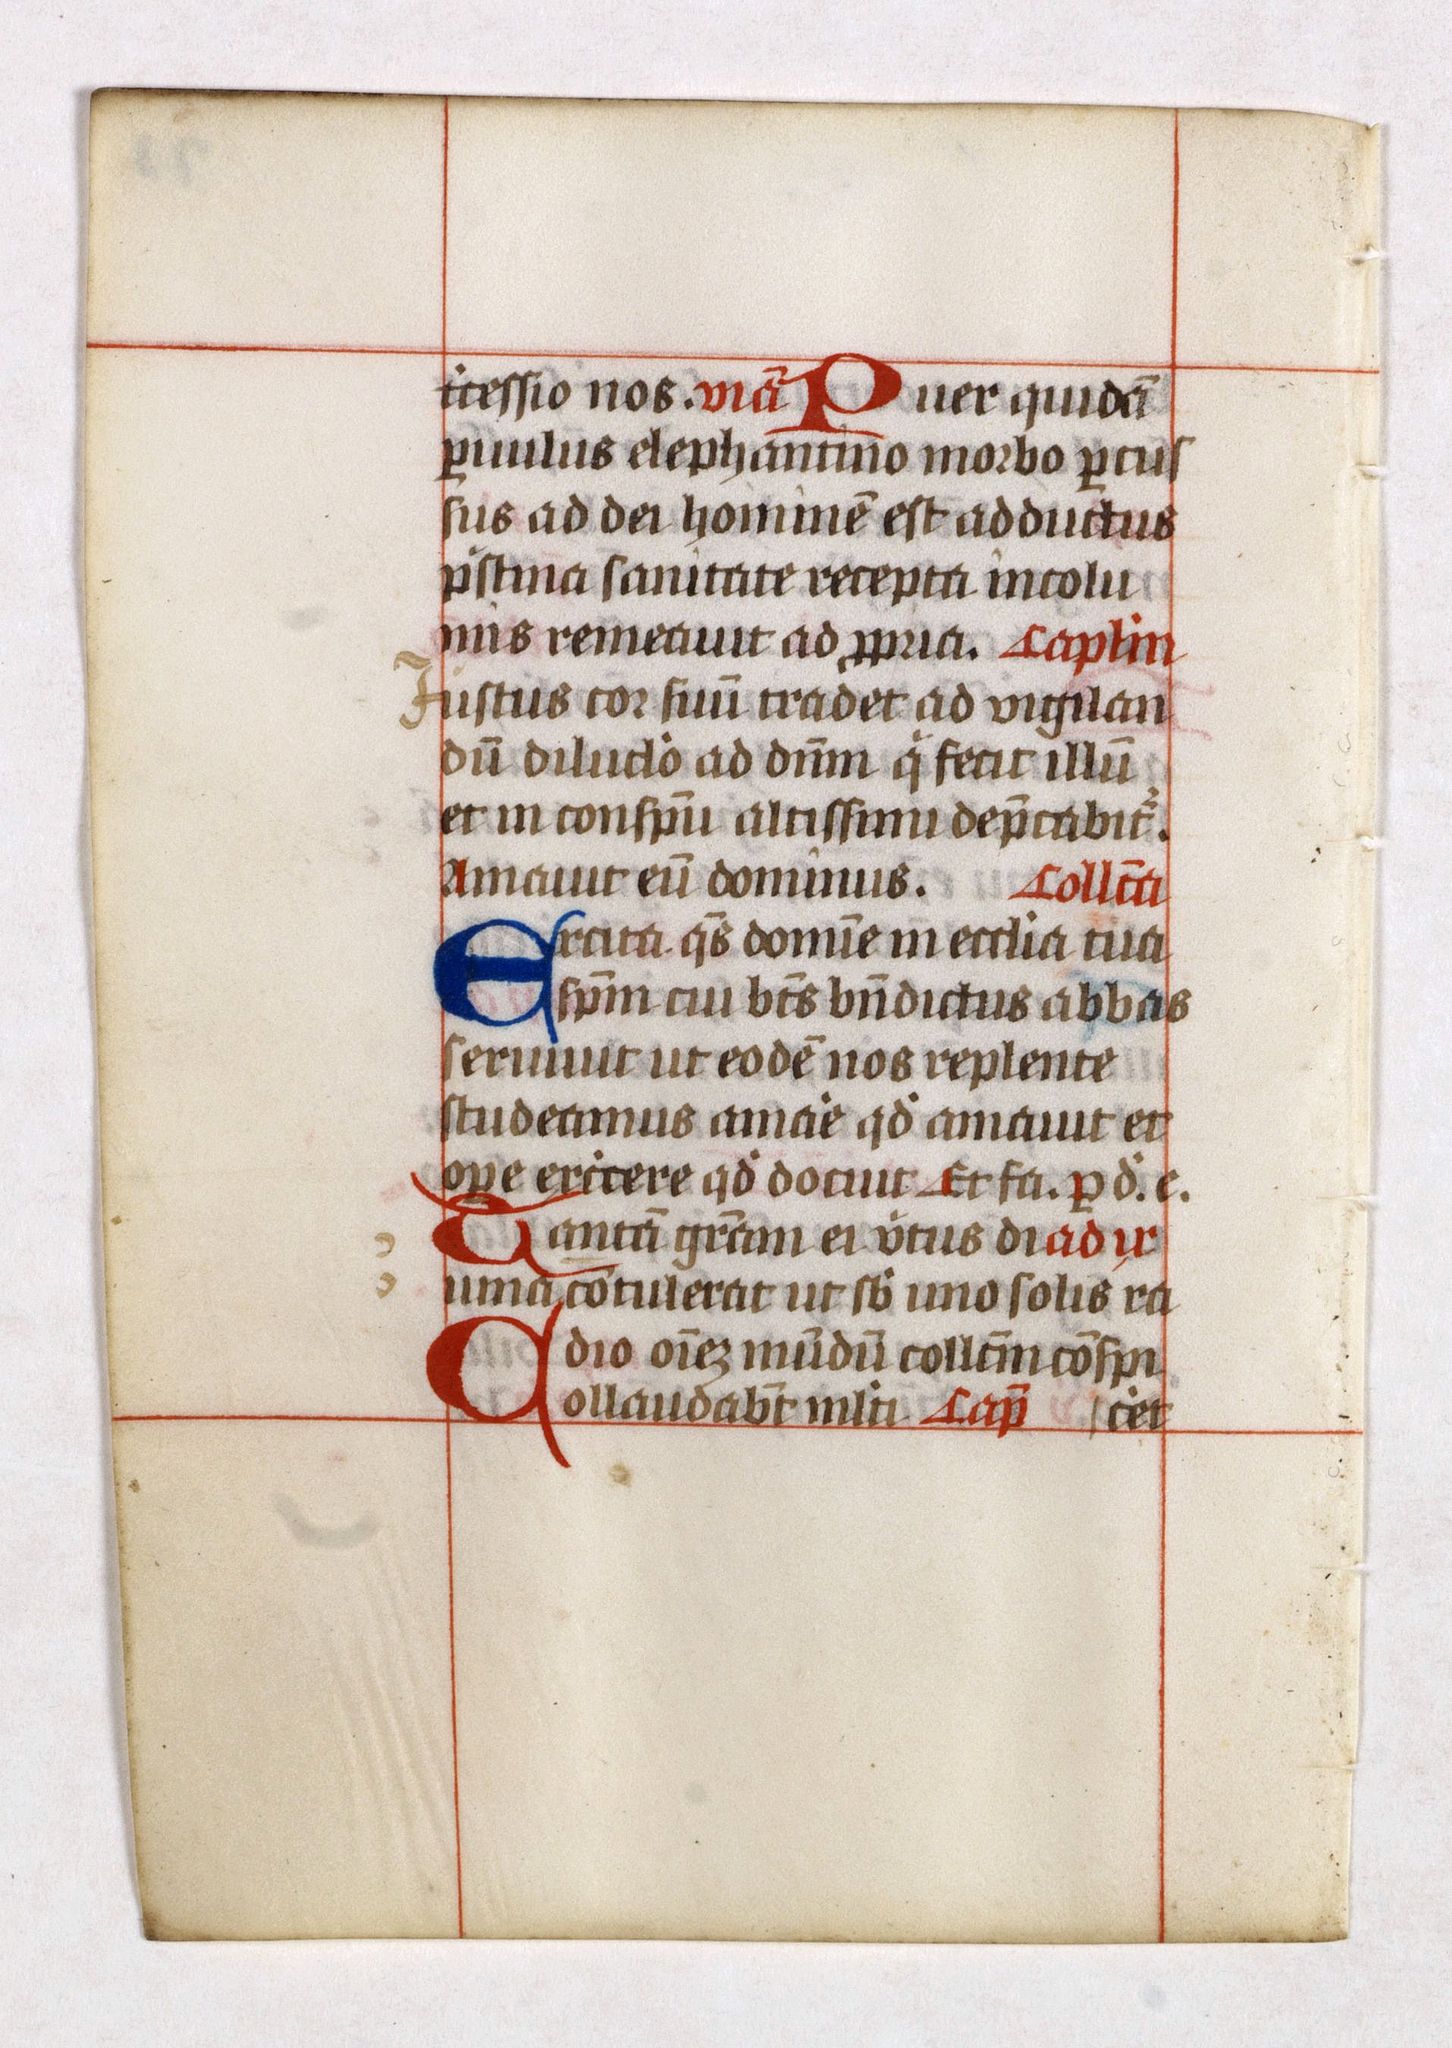 tcessio nos. vicā Puer quidā
ꝑuulus elephantino morbo ꝑcus
sus ad dei hominē est adductus
pͥstina sanitate recepta incolu
mis remeauit ad ꝓpria. Caplm
Iustus cor suū tradet ad vigilan
dū diluclo ad dn̄m qͥ fecit illū
et in conspu̅ altissimi dep̄cabit᷑.
Amauit eū dominus. Collcā
Excita qs̄ domīe in ecclia tua
sp̄m cui bt̄s bn̄dictus abbas
seruiuit ut eodē nos replente
studeamus amaͬe qd̓ amauit et
ope exͨcere qd̓ docuit Et fa. ꝑ d̓. e.
Tantā grām ei v̓tus di ad ix
uina cōtulerat ut sb̓ uno solis ra
dio oīeꝫ mūdū collcm̄ cōspi
Collaudabt̄ mlti Cap̄ | cͥet